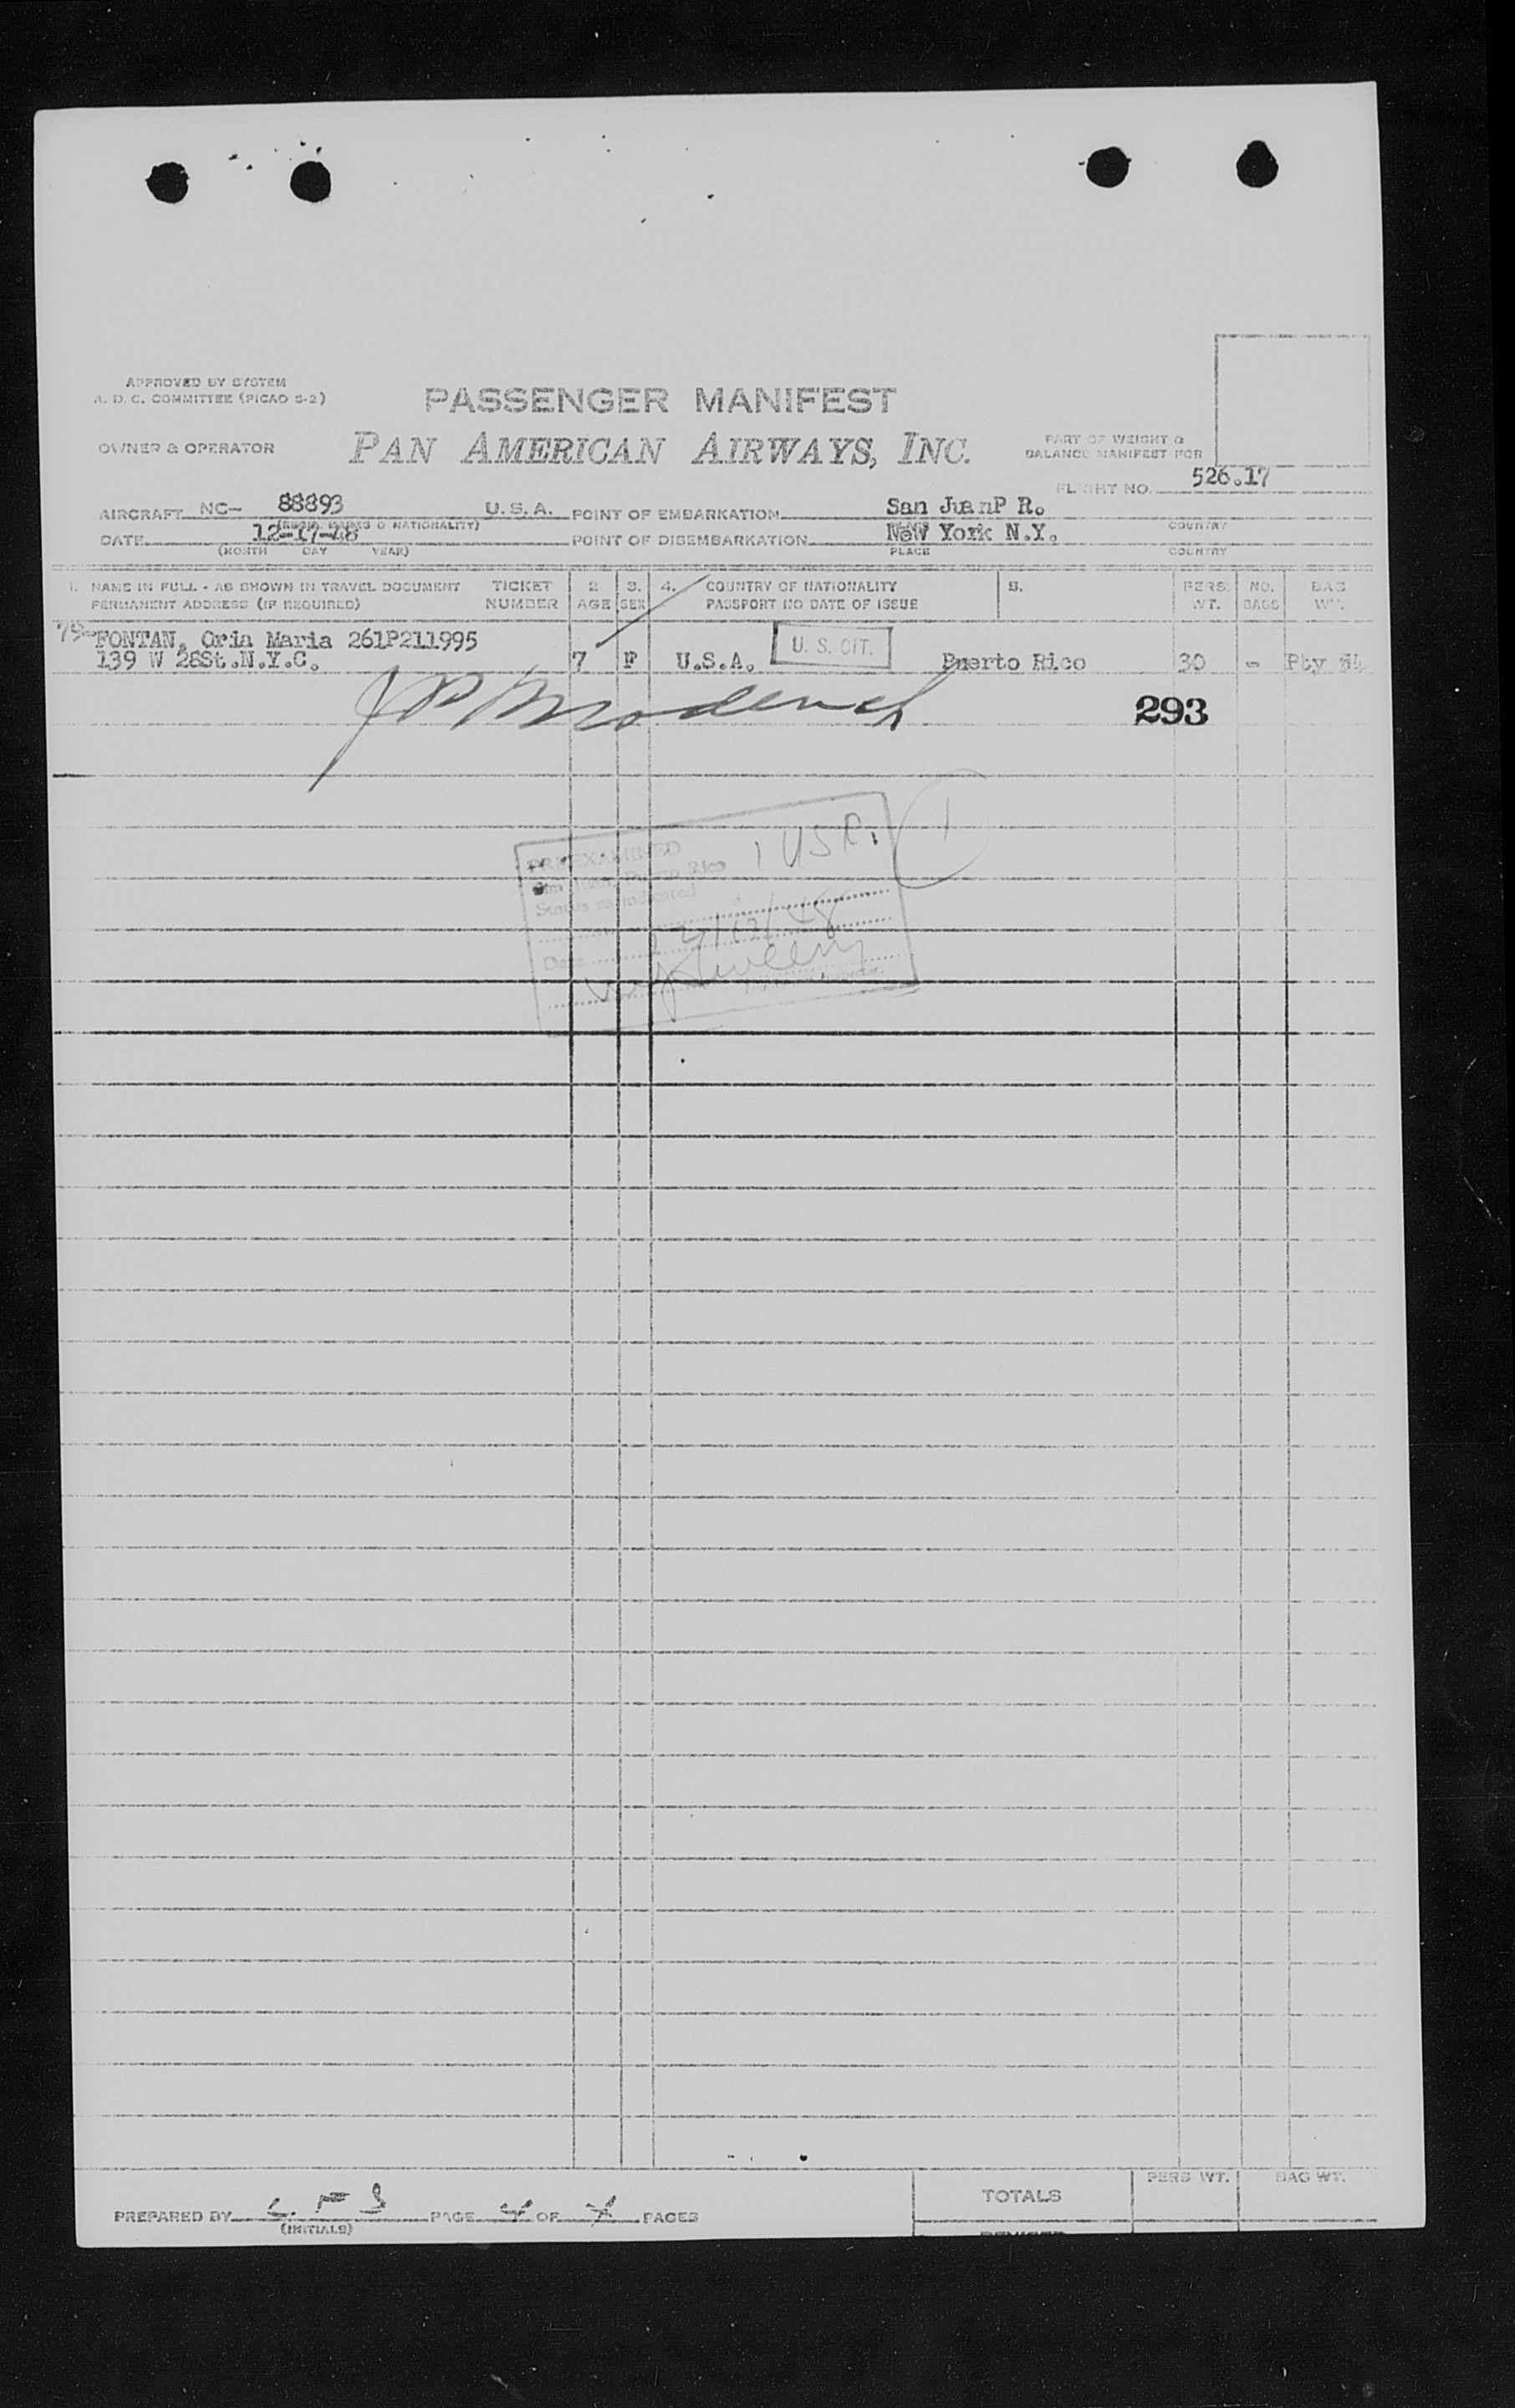 APPROVED BY SYSTEM
A. D. C. COMMITTEE (PICAO S-2)
PASSENGER MANIFEST
OWNER & OPERATOR
PAN AMERICAN AIRWAYS, INC.
PART OF WEIGHT &
BALANCE MANIFEST FOR
FLIGHT NO. 526.17
AIRCRAFT NC- 88893 U.S.A. POINT OF EMBARKATION San JuanP R.
(REGIS. MARKS & NATIONALITY) PLACE COUNTRY
DATE 12-17-48 POINT OF DISEMBARKATION New York N.Y.
(MONTH DAY YEAR) PLACE COUNTRY
1. NAME IN FULL - AS SHOWN IN TRAVEL DOCUMENT TICKET 2 3. 4. COUNTRY OF NATIONALITY 5. PERS. NO. BAG
PERMANENT ADDRESS (IF REQUIRED) NUMBER AGE SEX PASSPORT NO DATE OF ISSUE WT. BAGS WT.
79- FONTAN, Oria Maria 261P211995
139 W 28St.N.Y.C. 7 F U.S.A. U. S. CIT. Puerto Rico 30 - Pty
293
PREEXAMINED 1 USC. 1
San Juan, Puerto Rico
Status as indicated
Date 12/17/48
PREPARED BY PAGE OF PAGES
(INITIALS)
TOTALS
PERS WT. BAG WT.